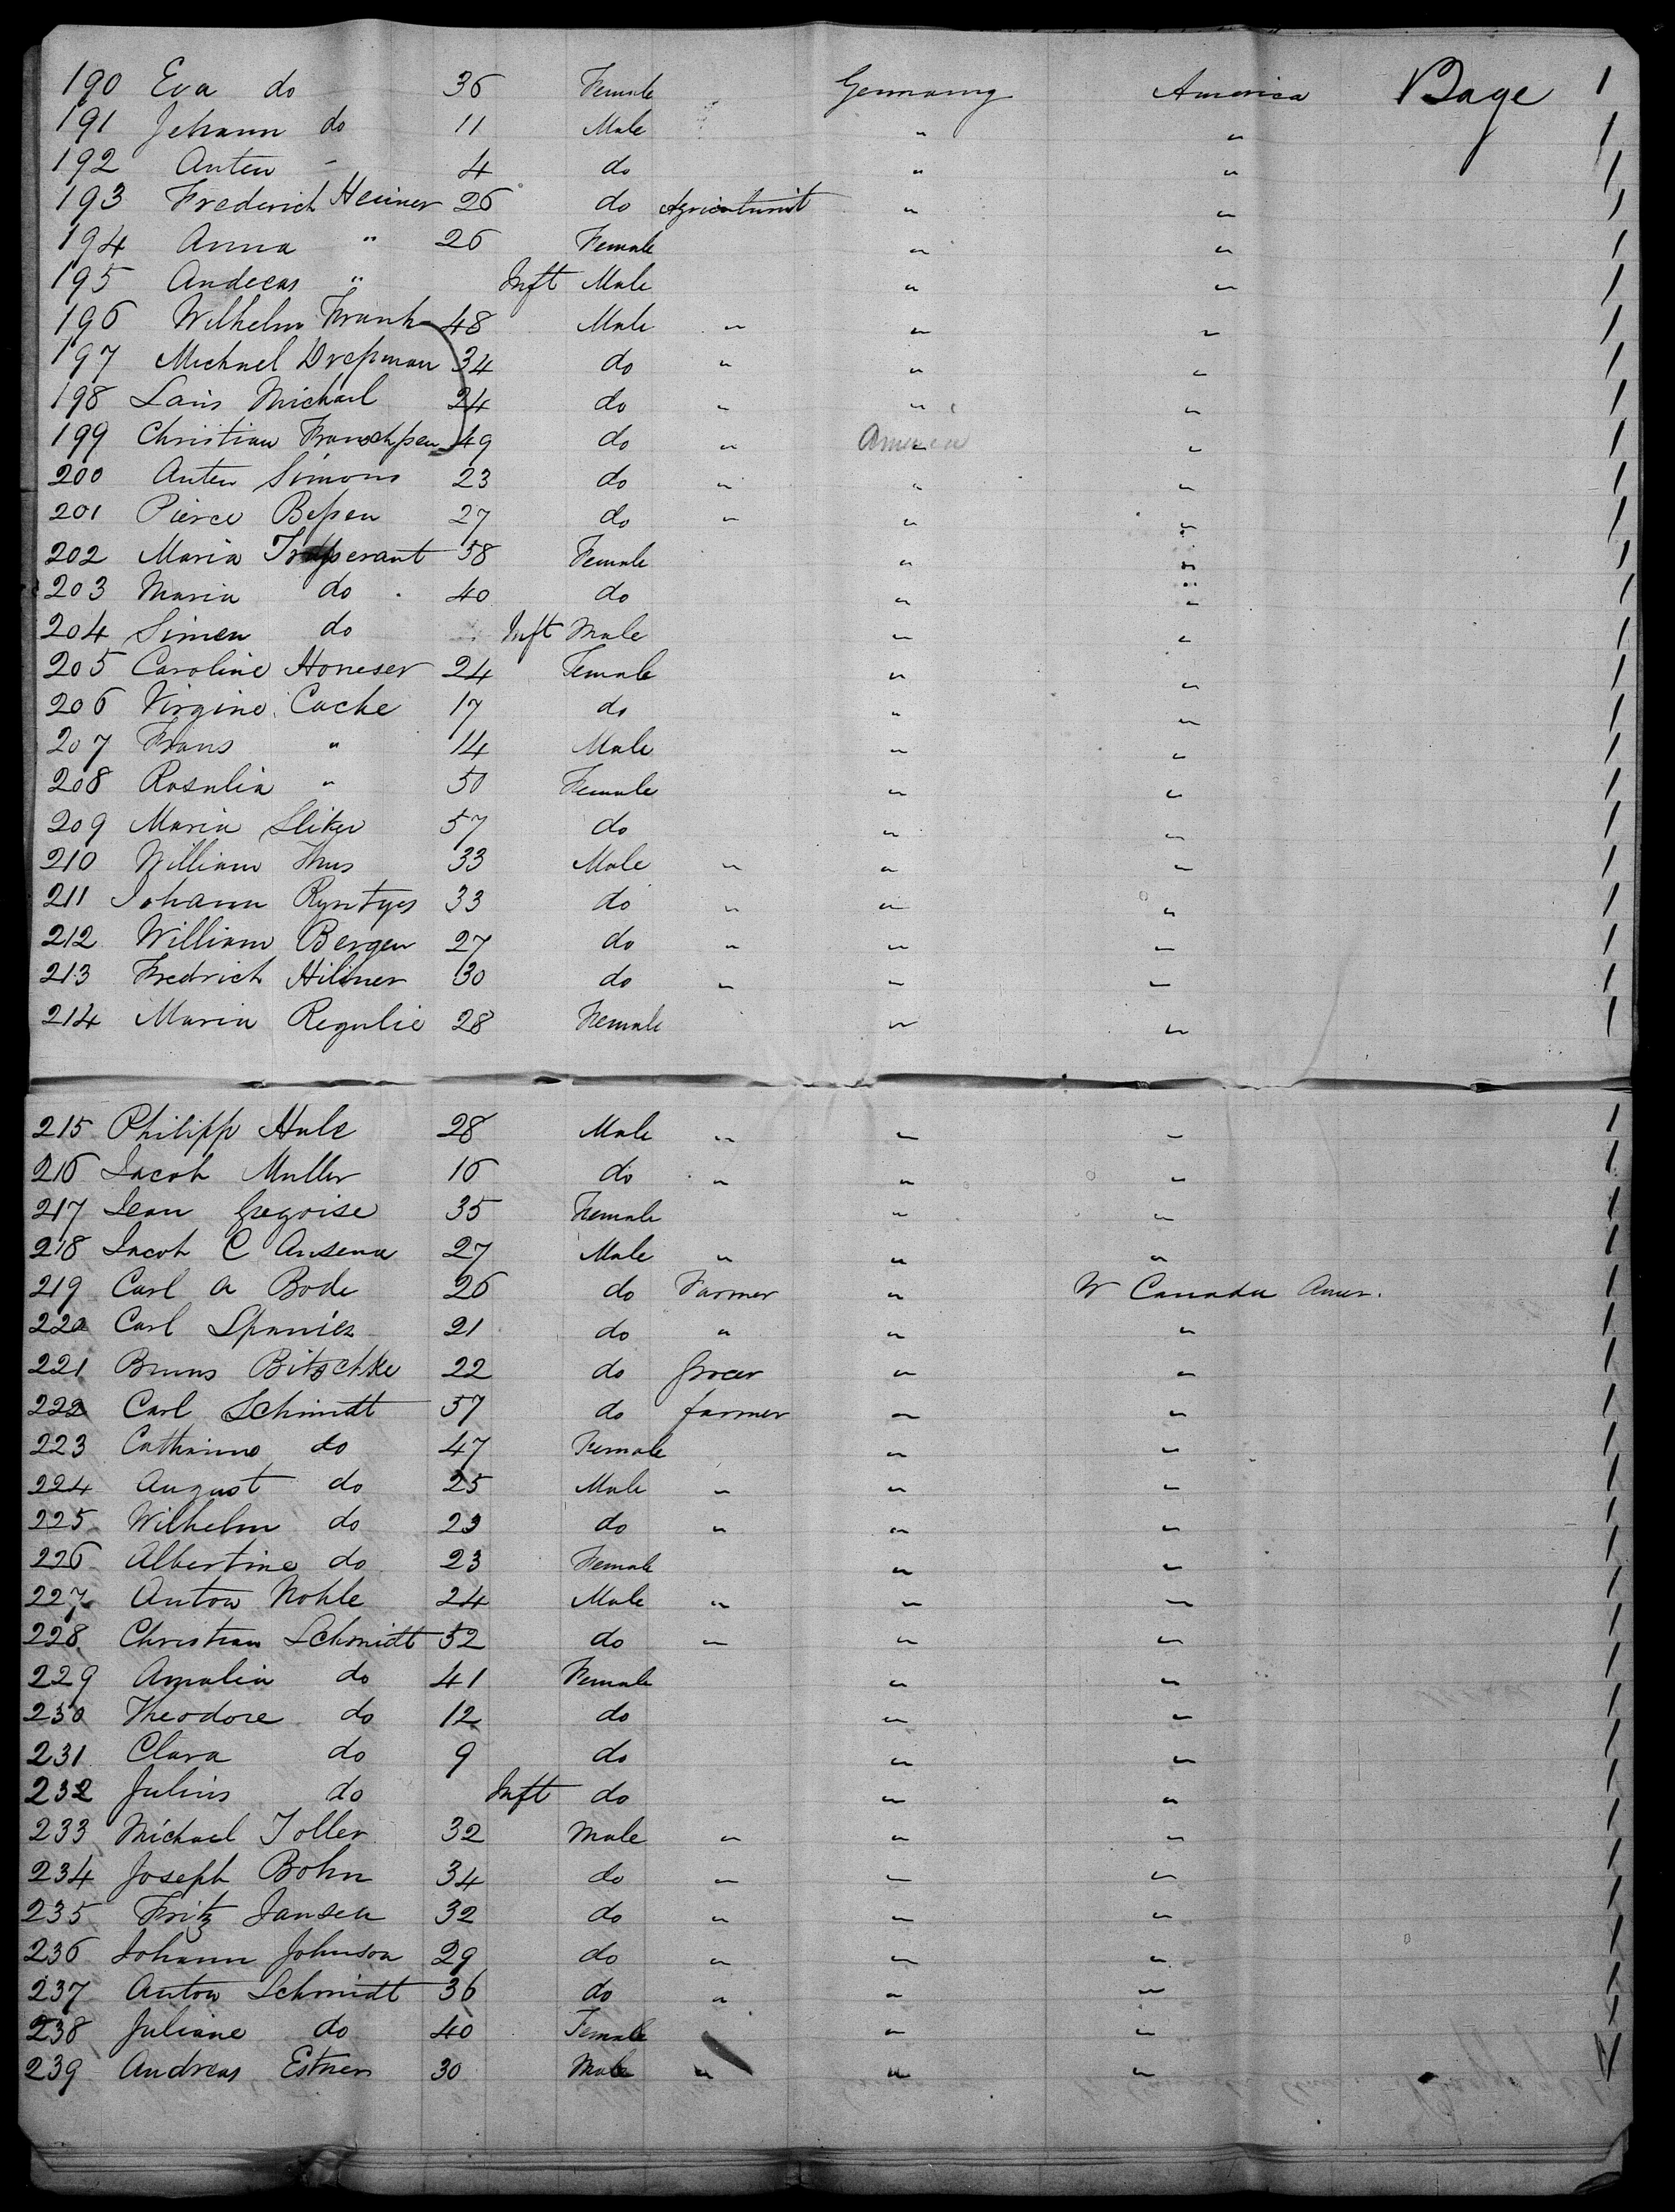 190 Eva do 36 Female Germany America Bage 1
191 Johann do 11 Male " " 1
192 Anton " 4 do " " 1
193 Frederich Heiner 26 do Agriculturist " " 1
194 Anna " 26 Female " " 1
195 Andreas " Inft Male " " 1
196 Wilhelm Frank 48 Male " " " 1
197 Michael 34 do " " " 1
198 Michael 24 do " " " 1
199 Christian 49 do " America " 1
200 Anton Simons 23 do " " " 1
201 Pierce Bessen 27 do " " " 1
202 Maria 58 Female " " 1
203 Maria do 40 do " " 1
204 Simen do Inft Male " " 1
205 Caroline Honeser 24 Female " " 1
206 Virgine Cache 17 do " " 1
207 Frans " 14 Male " " 1
208 Rosalia " 50 Female " " 1
209 Maria Sliker 57 do " " 1
210 William Thus 33 Male " " " 1
211 Johann Ryntyes 33 do " " " 1
212 William Bergen 27 do " " " 1
213 Fredrich Hilmer 30 do " " " 1
214 Maria Regulie 28 Female " " 1
215 Philipp Hule 28 Male " " " 1
216 Jacob Muller 16 do " " " 1
217 Jean Gregoise 35 Female " " 1
218 Jacob C Ansena 27 Male " " " 1
219 Carl A Bode 26 do Farmer " W Canada Amer. 1
220 Carl Spanier 21 do " " " 1
221 Bruns Bitzschke 22 do Grocer " " 1
222 Carl Schmidt 57 do farmer " " 1
223 Catharine do 47 Female " " 1
224 August do 25 Male " " " 1
225 Wilhelm do 23 do " " " 1
226 Albertine do 23 Female " " 1
227 Anton Nohle 24 Male " " " 1
228 Christian Schmidt 52 do " " " 1
229 Amalia do 41 Female " " 1
230 Theodore do 12 do " " 1
231 Clara do 9 do " " 1
232 Julius do Inft do " " 1
233 Michael Toller 32 Male " " " 1
234 Joseph Bohn 34 do " " " 1
235 Fritz Jansen 32 do " " " 1
236 Johann Johnson 29 do " " " 1
237 Anton Schmidt 36 do " " " 1
238 Juliane do 40 Female " " 1
239 Andreas Estner 30 Male " " " 1